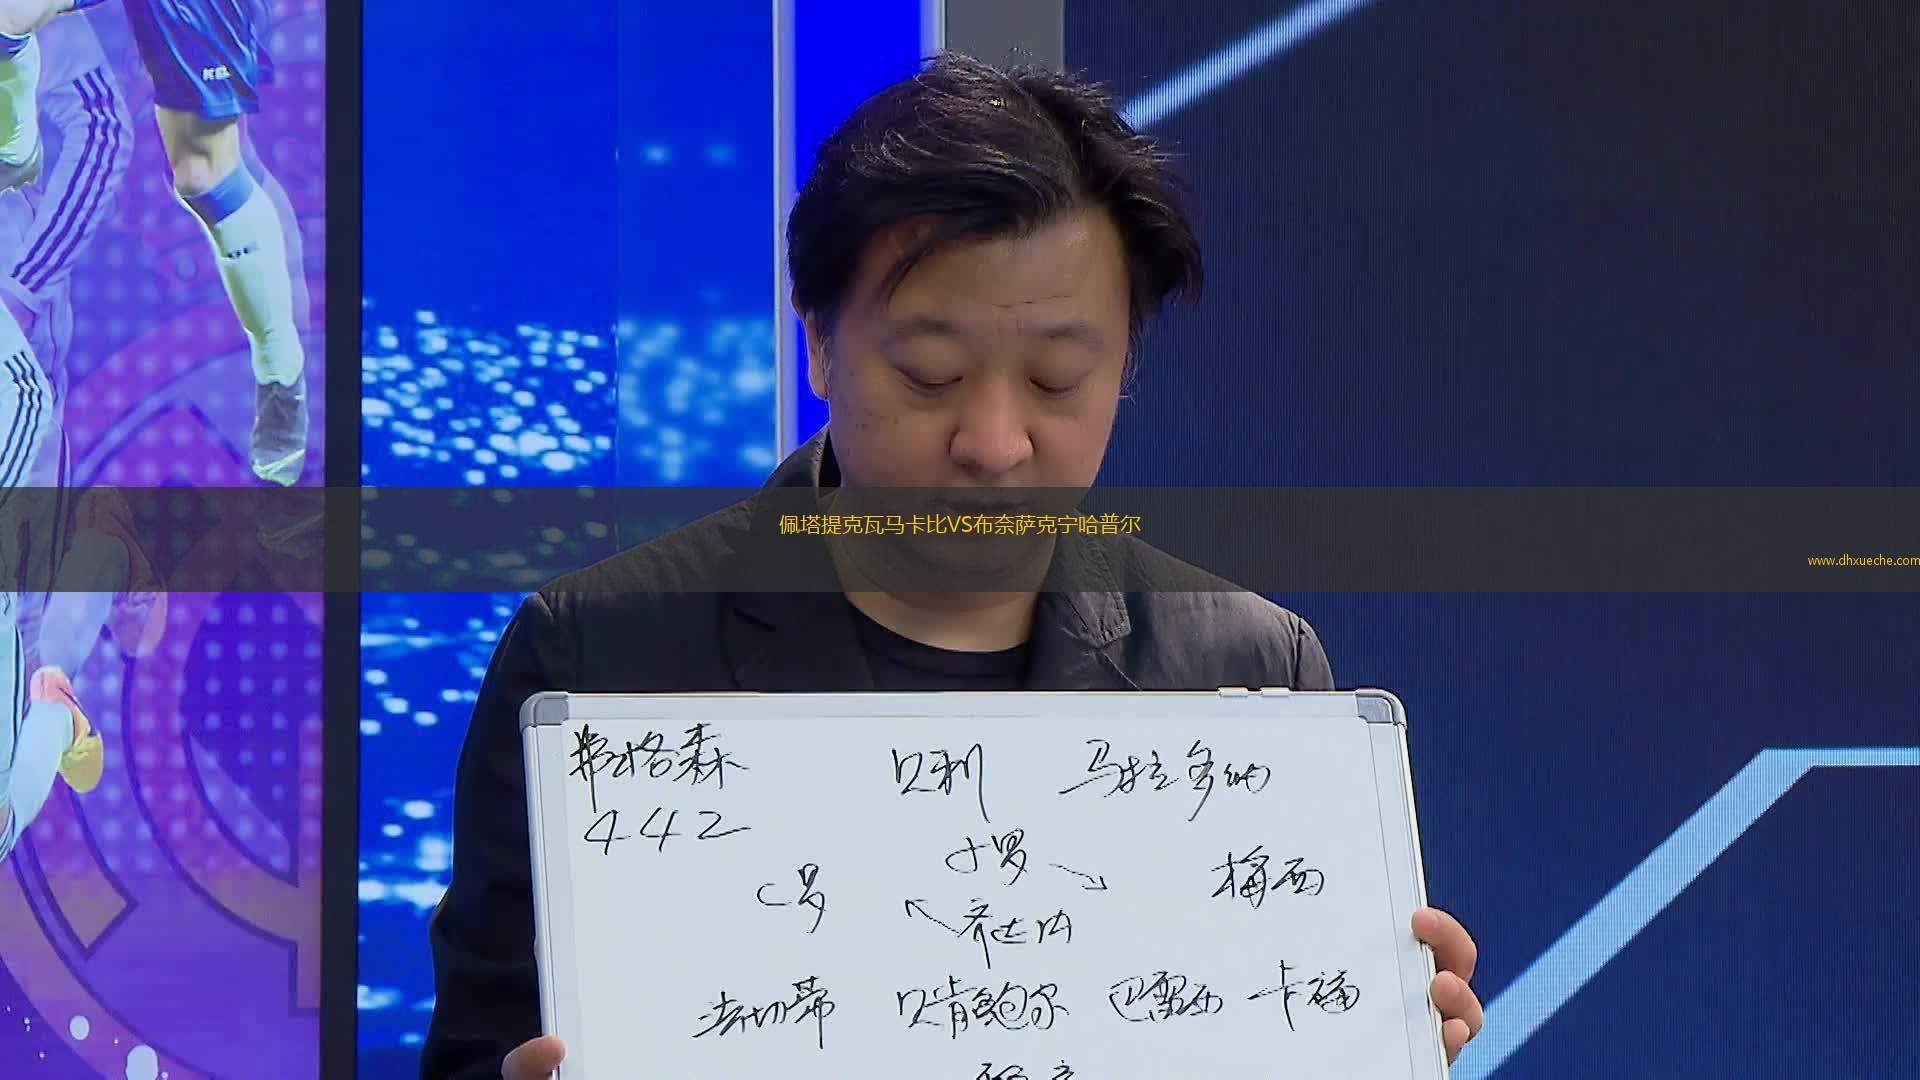 KEL
佩塔提克瓦马卡比VS布奈萨克宁哈普尔
www.dhxueche.com
弗格森 贝利 马拉多纳
442
小罗
C罗 梅西
齐达内
法切蒂 贝肯鲍尔 巴雷西 卡福